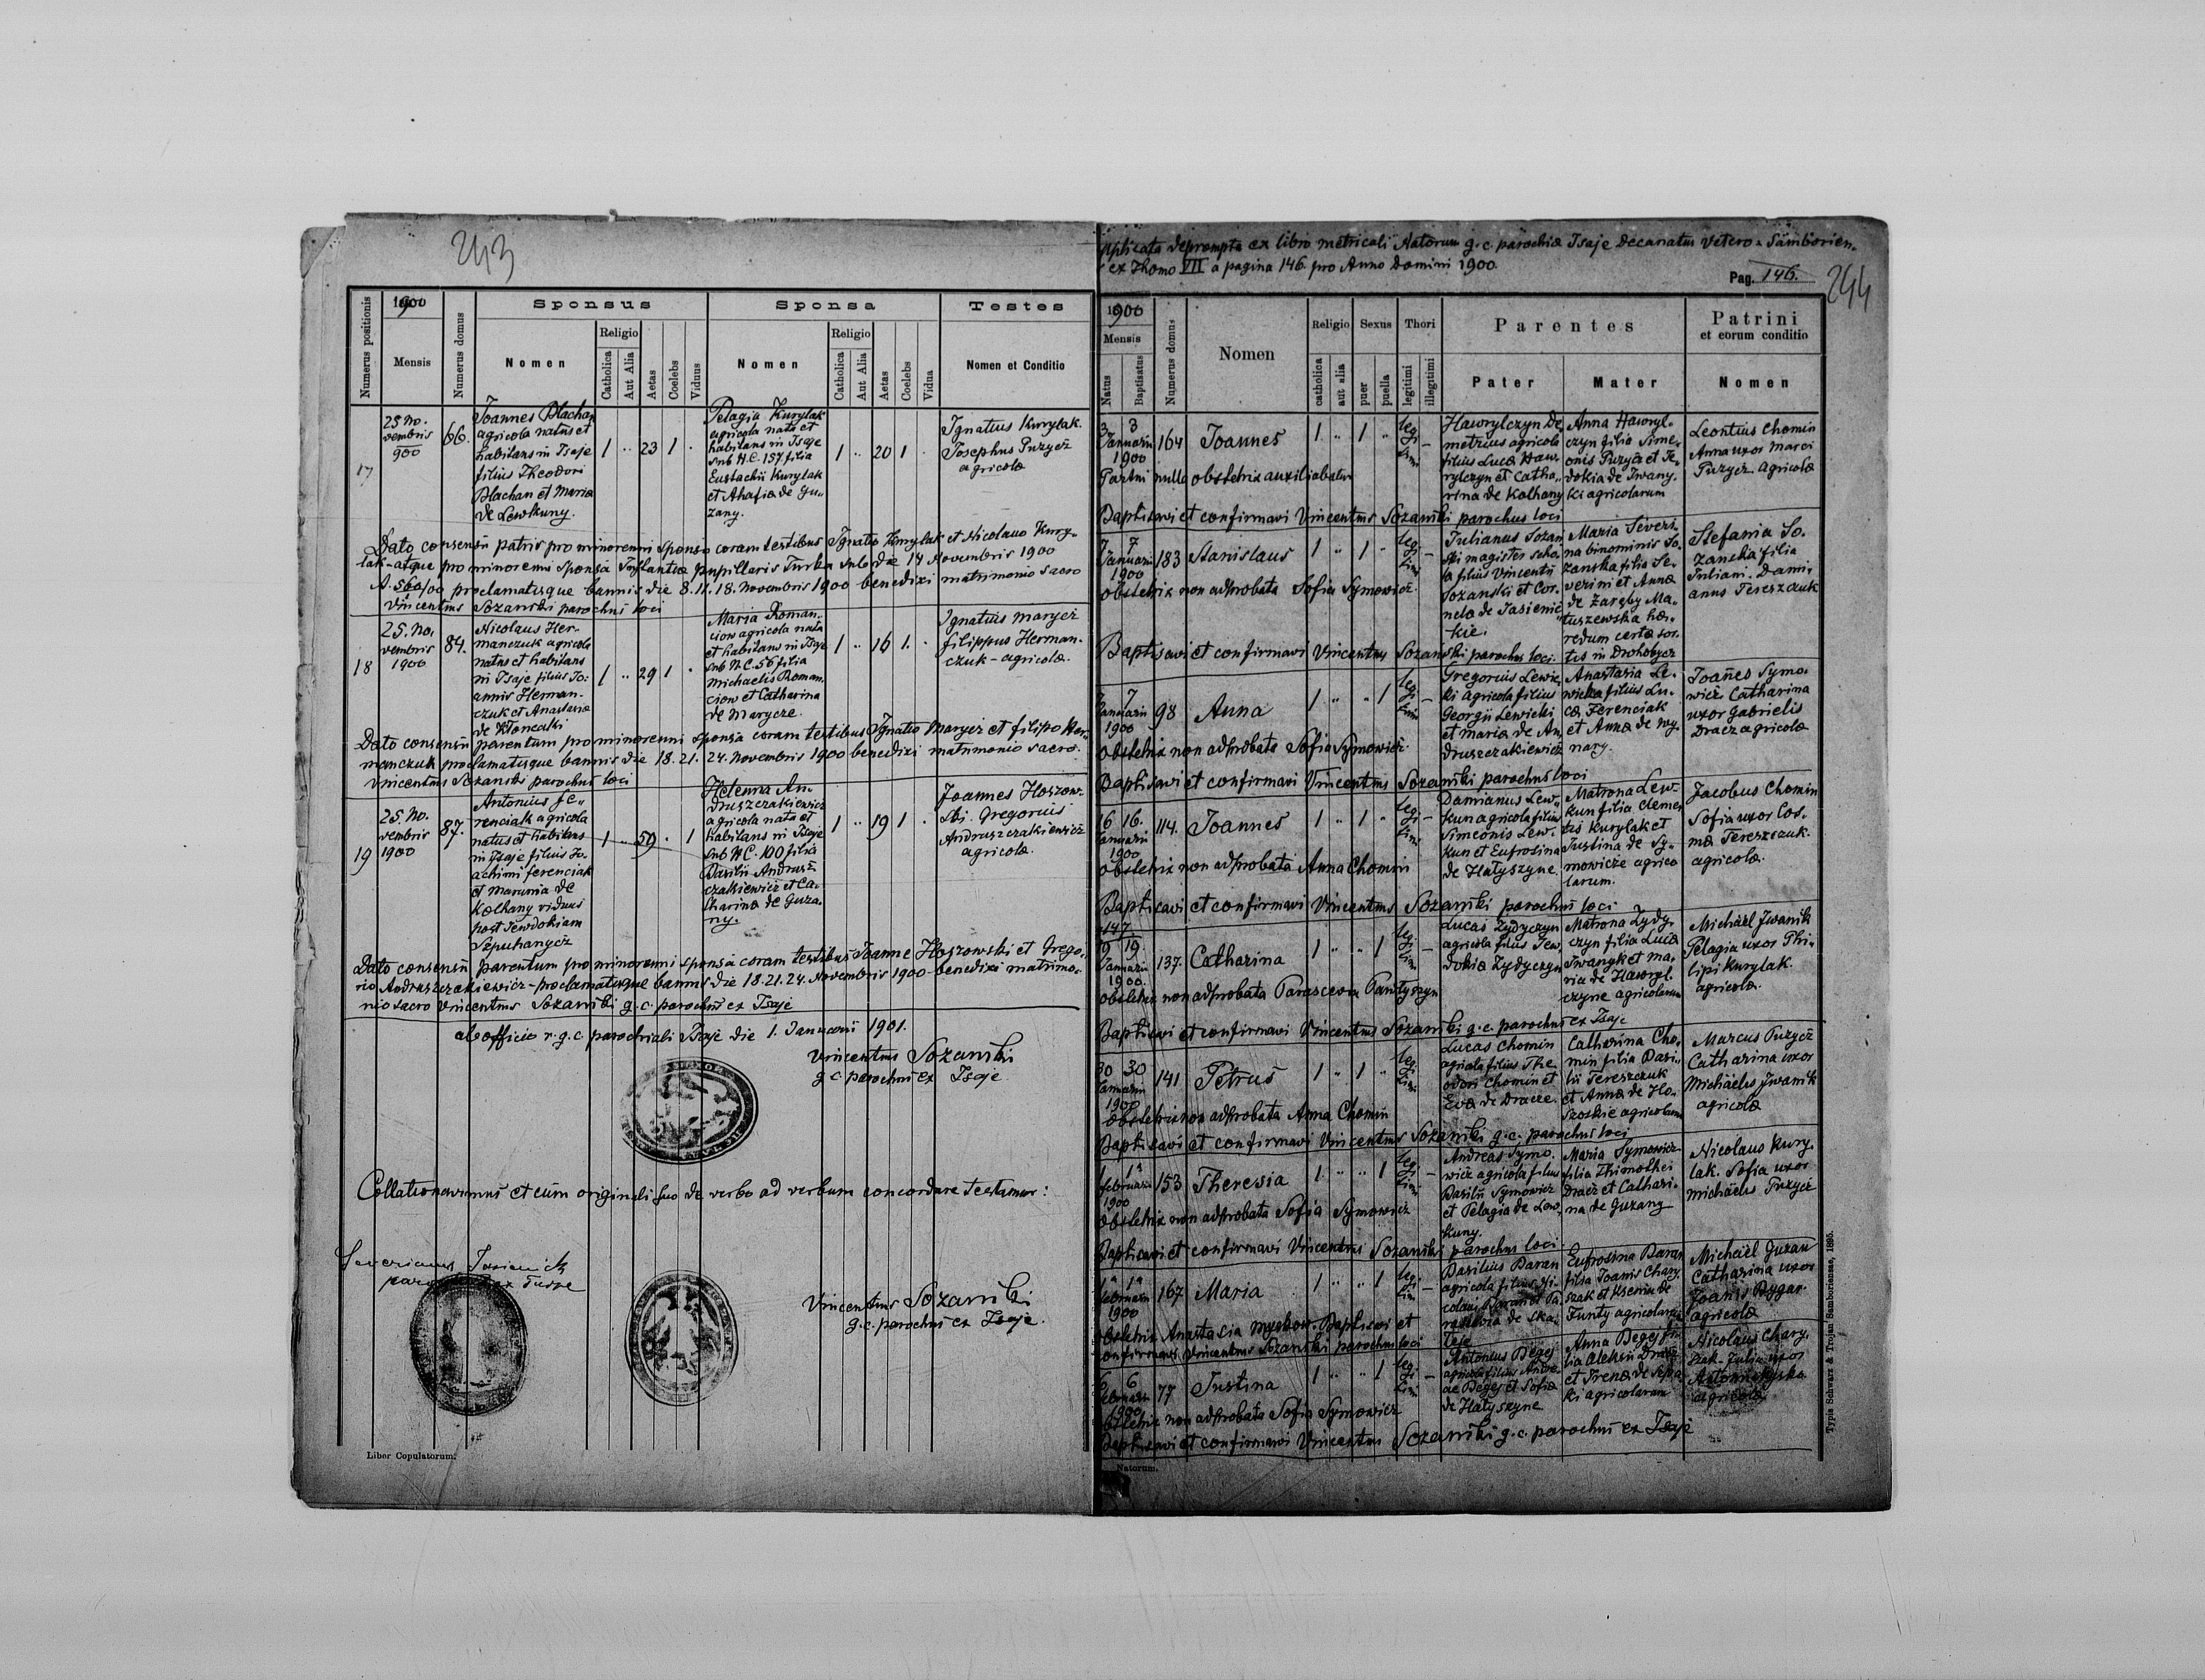 243
Numerus positionis
1900
Mensis
Numerus domus
Sponsus
Nomen
Religio
Catholica
Aut Alia
Aetas
Coelebs
Viduus
Sponsa
Nomen
Religio
Catholica
Aut Alia
Aetas
Coelebs
Vidua
Testes
Nomen et Conditio
17
25 No.
vembris
900
66.
Joannes Blachan
agricola natus et
habitans in Isaje
filius Theodori
Blachan et Maria
de Lewkuny.
1 .. 23 1 .
Pelagia Kurylak
agricola nata et
habitans in Isaje
sub N.C. 157 filia
Eustachii Kurylak
et Ahafia de Gu„
zany.
1 .. 20 1 .
Ignatius Kurylak.
Josephus Puzycz
agricolæ
Dato consensu patris pro minorenni sponso coram testibus Ignatio Kurylak et Nicolao Kury„
lak - atque pro minorenni sponsa Instantiæ pupillaris Turka sub die 14 Novembris 1900
A. 560/00 proclamatisque bannis die 8. 11. 18. Novembris 1900 benedixi matrimonio sacro
Vincentius Sozanski parochus loci
18
25. No.
vembris
1900
84.
Nicolaus Her-
manczuk agricola
natus et habitans
in Isaje filius Jo-
annis Herman-
czuk et Anastasiæ
de Kłoncaki
1 .. 29 1 .
Maria Roman„
ciow agricola nata
et habitans in Isaje
sub N.C. 56 filia
Michaelis Roman„
ciow et Catharina
de Marycze.
1 .. 16 1. .
Ignatius Marycz
filippus Herman-
czuk - agricolæ.
Dato consensu parentum pro minorenni sponsa coram testibus Ignatio Marycz et filipo Her„
manczuk proclamatisque bannis die 18. 21. 24. Novembris 1900 benedixi matrimonio sacro.
Vincentius Sozanski parochus loci
19
25. No.
vembris
1900
87.
Antonius Fe„
renciak agricola
natus et habitans
in Isaje filius Jo-
achimi ferenciak
et Marunia de
Kolhany viduus
post Jewdokiam
Szpuhanycz
1 .. 59 . 1
Helenna An-
druszczakiewicz
agricola nata et
habitans in Isaje
sub N.C. 100 filia
Basilii Andrusz
czakiewicz et Ca-
tharina de Guza-
ny.
1 .. 19 1 .
Joannes Hoszow-
ski. Gregorius
Andruszczakiewicz
agricolæ.
Dato consensu parentum pro minorenni sponsa coram testibus Joanne Hoszowski et Grego-
rio Andruszczakiewicz - proclamatisque bannis die 18. 21. 24. Novembris 1900 - benedixi matrimo-
nio sacro Vincentius Sozanski g.c. parochus ex Isaje
Ab officio r.g.c. parochiali Isaje die 1. Januarii 1901.
Vincentius Sozanski
g.c. parochus ex Isaje
Collationavimus et cum originali suo de verbo ad verbum concordare testamur:
Severianus Jasienicki
ex Turze
Vincentius Sozanski
g.c. parochus ex Isaje.
Liber Copulatorum.
plicata deprompta ex libro metricali Natorum g.c. parochiæ Isaje Decanatus Vetero-Samborien.
ex Thomo VII a pagina 146. pro Anno Domini 1900.
Pag. 146.
244
1900
Mensis
Natus
Baptisatus
Numerus domus
Nomen
Religio
catholica
aut alia
Sexus
puer
puella
Thori
legitimi
illegitimi
Parentes
Pater
Mater
Patrini
et eorum conditio
Nomen
3 3
Januarii
1900
164
Joannes
1 .. 1 ..
legi
timi
-
Hawrylczyn De
metrius agricola
filius Lucæ Haw„
rylczyn et Catha„
rina de Kolhany
Anna Hawryl-
czyn filia Sime„
onis Puzycz et Je„
dokia de Iwany„
ki agricolarum
Leontius Chomin
Anna uxor Marci
Puzycz. Agricolæ
Partui nulla obstetrix auxiliabatur
Baptisavi et confirmavi Vincentius Sozanski parochus loci
7 7
Januarii
1900
183
Stanislaus
1 .. 1 ..
legi
timi
-
Julianus Sozan
ski magister scho„
la filius Vincentii
Sozanski et Cor„
nela de Jasienic
kie.
Maria Severi„
na binominis So„
zanska filia Se„
verini et Annæ
de Zaręby Ma„
tuszewska hæ„
redum certæ sor„
tis in Drohobycz
Stefania So„
zanska filia
Juliani. Dami„
anus Tereszczuk
obstetrix non adprobata Sofia Symowicz.
Baptisavi et confirmavi Vincentius Sozanski parochus loci.
7
Januarii
1900
98
Anna
1 .. .. 1
legi
timi
-
Gregorius Lewic„
ki agricola filius
Georgii Lewicki
et Maria de An„
druszczakiewicz
Anastasia Le„
wicka filius Lu„
cæ Ferenciak
et Anna de Wy„
nary.
Joañes Symo„
wicz Catharina
uxor Gabrielis
Dracz agricolæ
obstetrix non adprobata Sofia Symowicz.
Baptisavi et confirmavi Vincentius Sozanski parochus loci
16 16.
Januarii
1900
114.
Joannes
1 .. 1 ..
legi
timi
-
Damianus Lew„
kun agricola filius
Simeonis Lew„
kun et Eufrosina
de Hałyszyne.
Matrona Lew„
kun filia Clemen
tis Kurylak et
Justina de Sy„
mowicze agrico
larum.
Jacobus Chomin
Sofia uxor Cos„
mæ Tereszczuk.
agricolæ.
obstetrix non adprobata Anna Chomin
Baptisavi et confirmavi Vincentius Sozanski parochus loci
147
19 19.
Januarii
1900.
137.
Catharina
1 .. .. 1
legi
timi
-
Lucas Zydyczyn
agricola filius Jew„
dokia Zydyczyn
Matrona Zydy„
czyn filia Lucæ
Iwanyk et Ma„
ria de Hawryl„
czyne agricolarum
Michael Iwanik
Pelagia uxor Phi„
lipi Kurylak.
agricolæ.
obstetrix non adprobata Parascevia
Baptisavi et confirmavi Vincentius Sozanski g.c. parochus ex Isaje
30 30
Januarii
1900
141
Petrus
1 .. 1 ..
legi
timi
-
Lucas Chomin
agricola filius The
odori Chomin et
Eva de Dracze.
Catharina Cho„
min filia Basi„
lii Tereszczuk
et Anna de Ho„
szoskie agricolarum
Marcus Puzycz
Catharina uxor
Michaelis Iwanik
agricolæ
obstetrix non adprobata Anna Chomin
Baptisavi et confirmavi Vincentius Sozanski g.c. parochus loci
1 1
februarii
1900
153
Theresia
1 .. .. 1
legi
timi
-
Andreas Symo„
wicz agricola filius
Basilii Symowicz
et Pelagia de Lew„
kuny.
Maria Symowicz
filia Thimothei
Dracz et Cathari„
na de Guzany
Nicolaus Kury„
lak. Sofia uxor
Michaelis Puzycz
obstetrix non adprobata Sofia Symowicz
Baptisavi et confirmavi Vincentius Sozanski parochus loci.
1 1
februarii
1900
167
Maria
1 .. .. 1
legi
timi
-
Basilius Baran
agricola filius Ni„
colai Baran et Pa„
Eufrosina Baran
filia Joannis Chary„
szak et Ksenia de
Funty agricolarum
Michael Guzan
Catharina uxor
Joannis
agricolæ
obstetrix Anastasia Baptisavi et
confirmavi Vincentius Sozanski parochus loci
6 6
februarii
1900
77
Justina
1 .. .. 1
legi
timi
-
Antonius Begej
agricola filius Andre
ae Begej et Sofia
de Hałyszyne
Anna Begej fi„
lia Aleksii Dracz
et Irena de
ki agricolarum
Nicolaus Chary„
szak - Julia uxor
agricolæ
obstetrix non adprobata Sofia Symowicz
Baptisavi et confirmavi Vincentius Sozanski g.c. parochus ex Isaje
Natorum.
Typis Schwarz & Trojan Samboriensae, 1895.